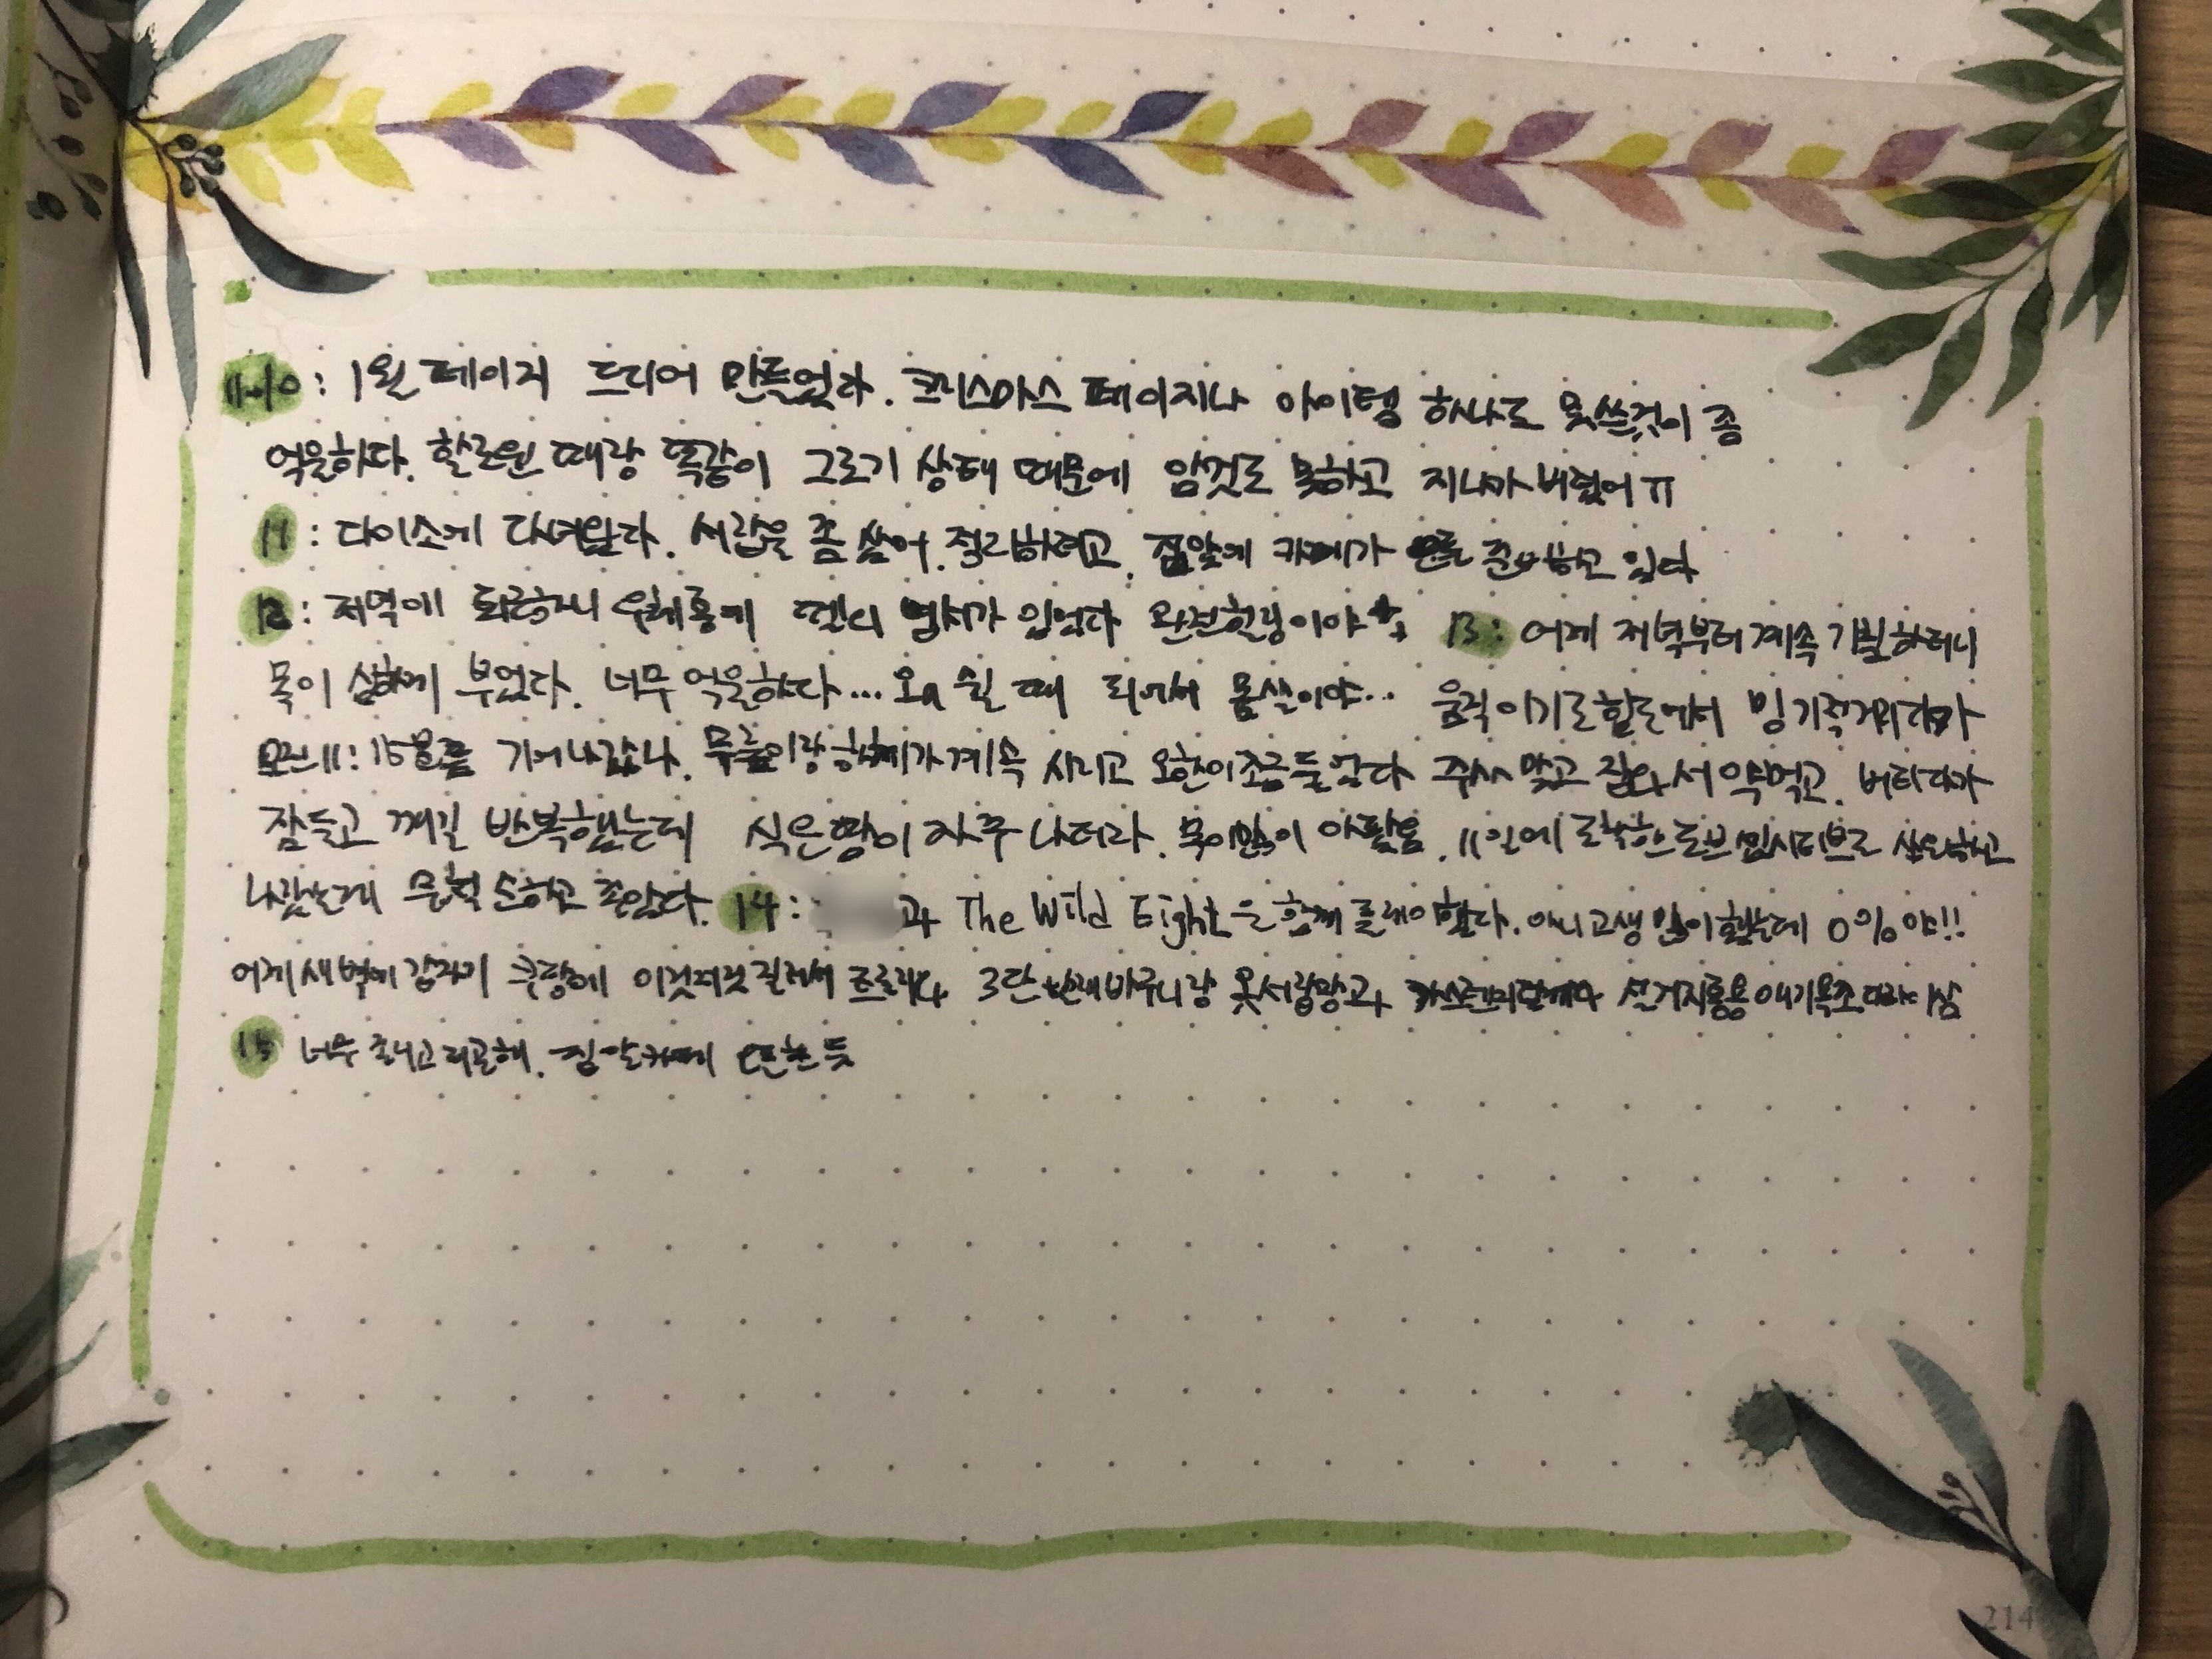 : 1월 페이지 드디어 만들었다. 크리스마스 페이지나 아이템 하나도 못쓴것이 좀
억울하다. 할로윈 때랑 똑같이 그로기 상태 때문에 암것도 못하고 지나가버렸어 ㅠ
11 : 다이소에 다녀왔다. 서랍을 좀 쌓아. 정리하려고. 집앞에 카페가 준비하고 있다
12 : 저녁에 퇴근하니 우체통에 엽서가 있었다 완전힐링이야 13 : 어제 저녁부터 계속 기침하더니
목이 심하게 부었다. 너무 억울하다... 왜 쉴 때 되어서 몸살이야.. 움직이기도 힘들어서 밍기적거리다가
오전 11:15분쯤 기어나갔으나. 무릎이랑 계속 시리고 오한이 조금 들었다 주사 맞고 집와서 약먹고. 버티다가
잠들고 깨길 반복했는데 식은땀이 자주 나더라. 목이많이 아팠음. 11일에 도착한
무척 순하고 좋았다. 14 : 과 The Wild Eight을 함께 플레이했다. 아니 고생 많이했는데 0%야!!
어제 새벽에 갑자기 쿠팡에 이것저것 질러서 3단 빨래바구니랑 옷서랍장과 설거지통용 아기욕조
15 너무 춥고 피곤해. 집앞카페 오픈한 듯
214